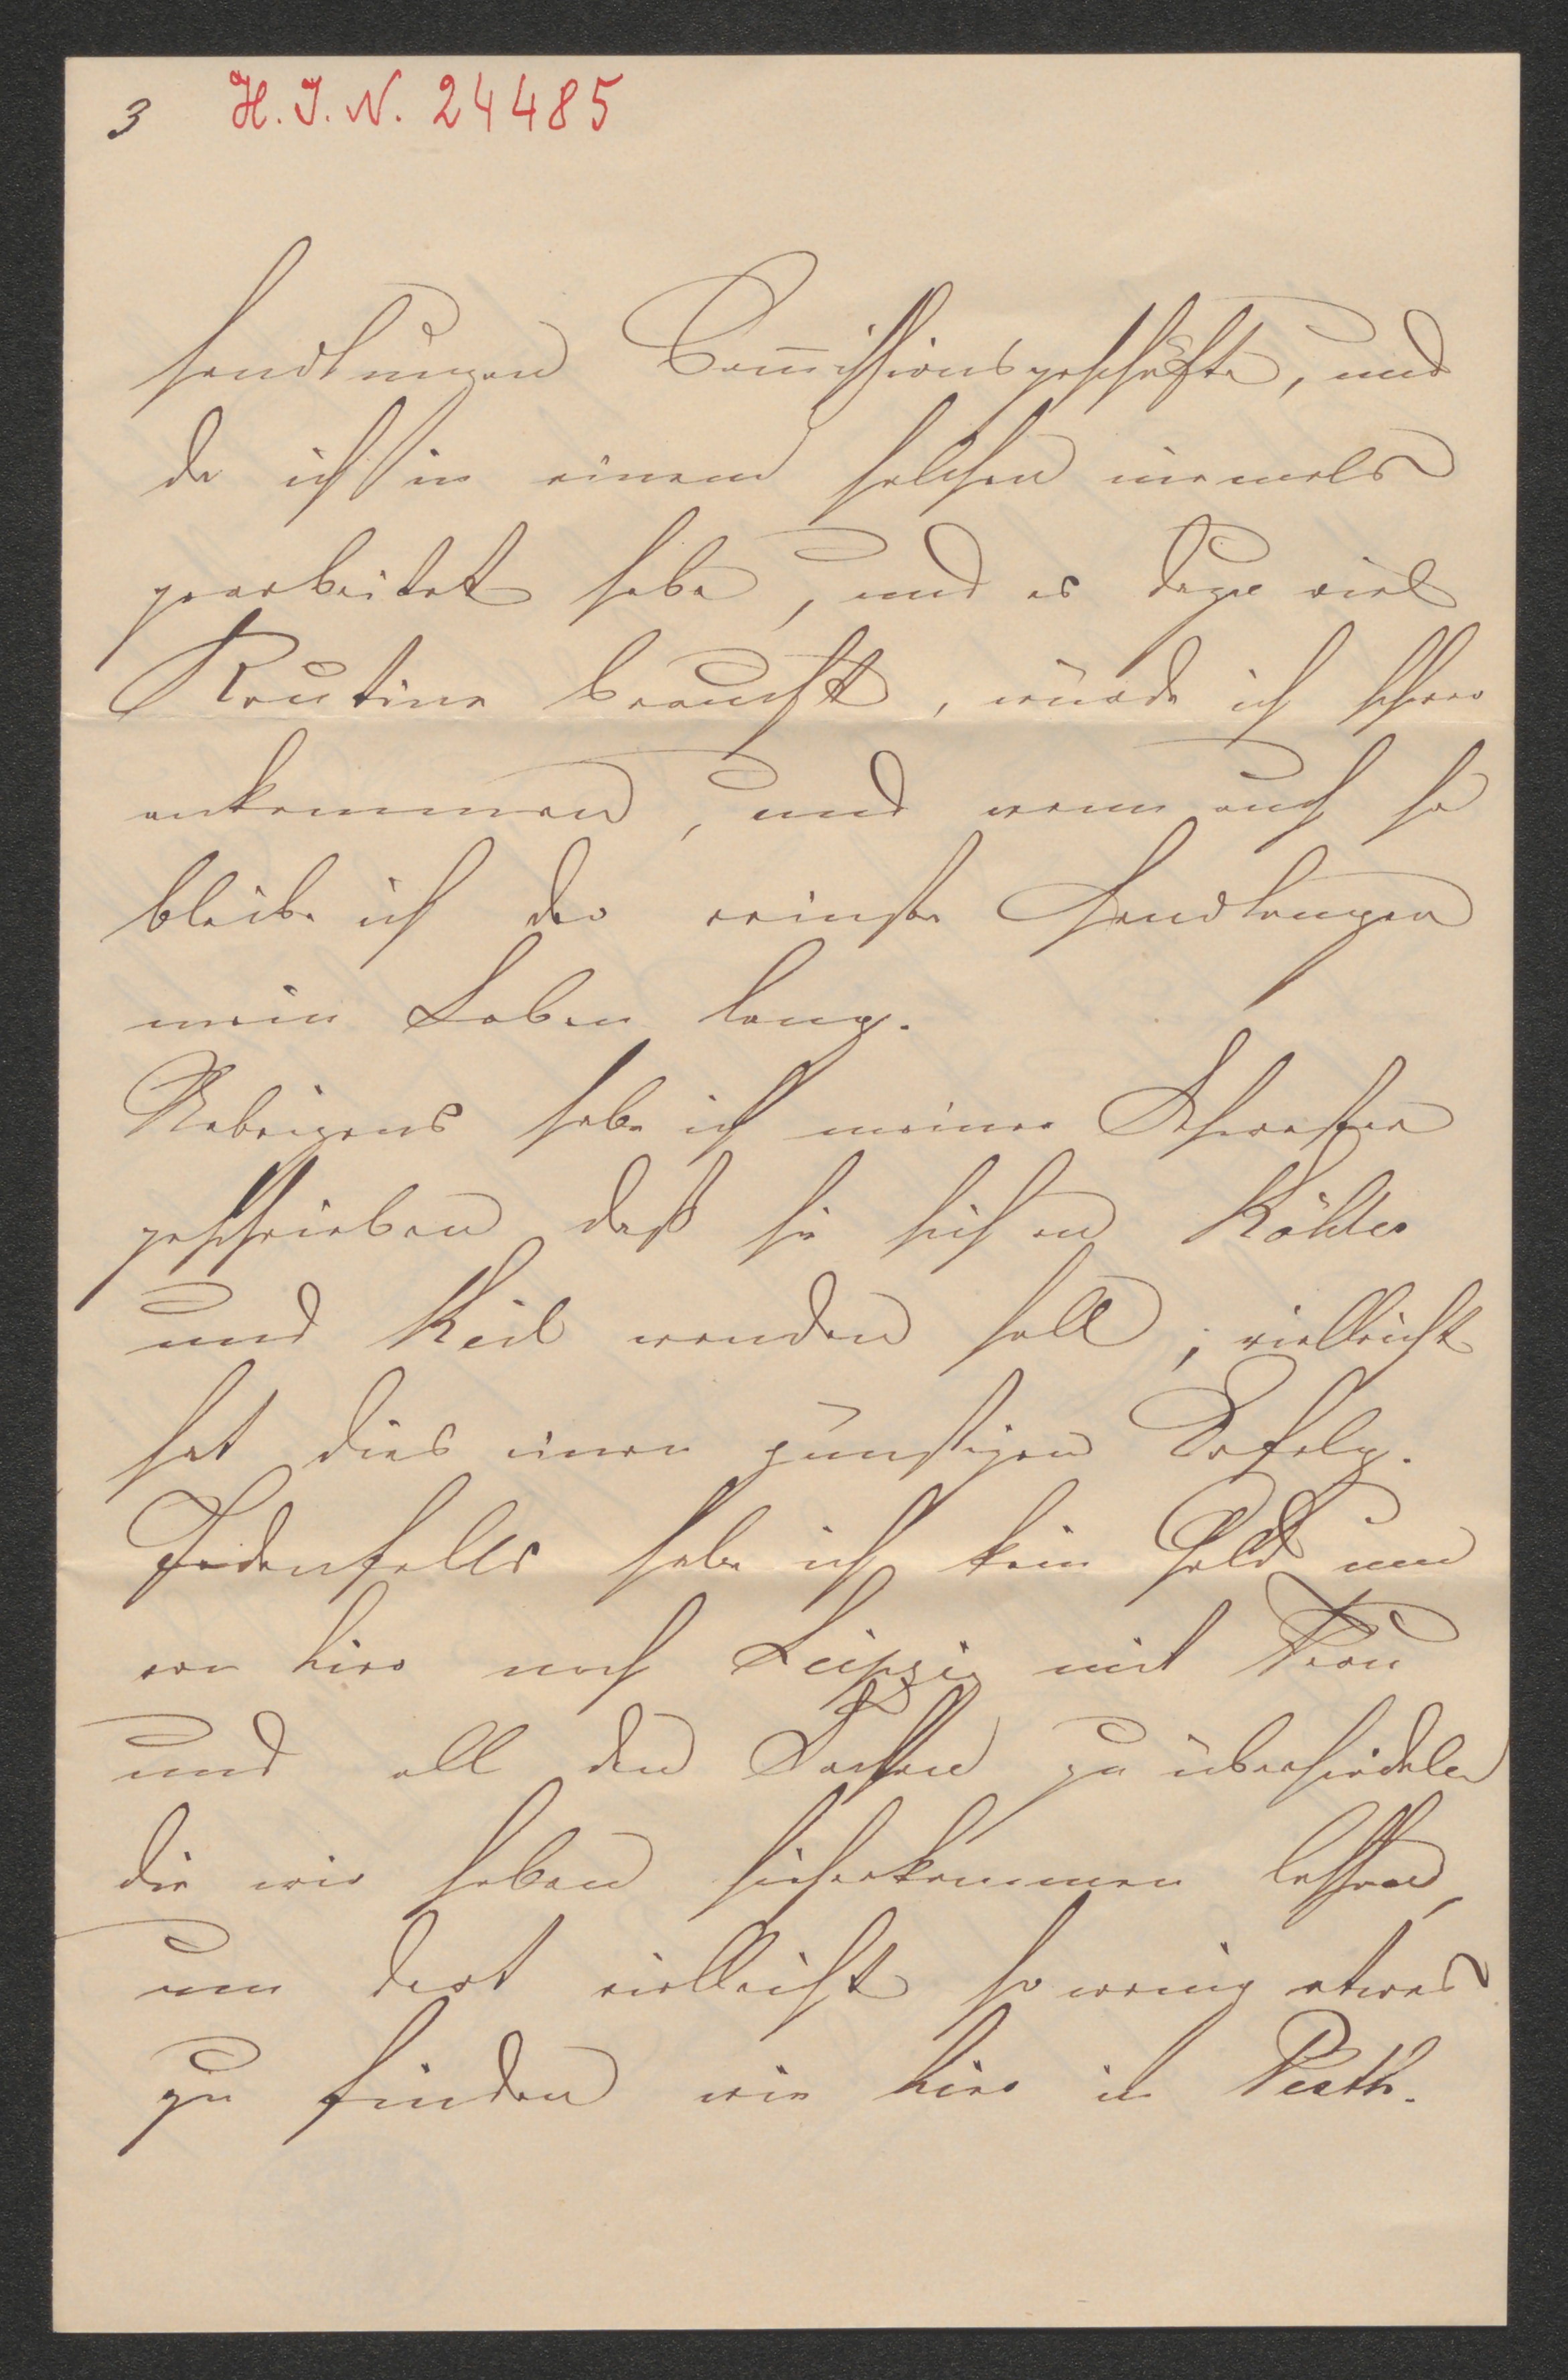 3 H. I. N. 24485
handlungen Com̅issionsgeschäfte, und
da ich in einem solchen niemals
gearbeitet habe, und es dazu viel
Routine braucht, würde ich schwer
ankommen, und wenn auch so
bleibe ich der reinste Handlanger
mein Leben lang.
Uebrigens habe ich meiner Schwester
geschrieben daß sie sich an Köhler
und Keil wenden soll; vielleicht
hat dies einen günstigen Erfolg.
Jedenfalls habe ich kein Geld um
von hier nach Leipzig mit Frau
und all den Sachen zu übersiedeln
die wir haben hieherkommen lassen,
um dort vielleicht so wenig etwas
zu finden wie hier in Pesth.